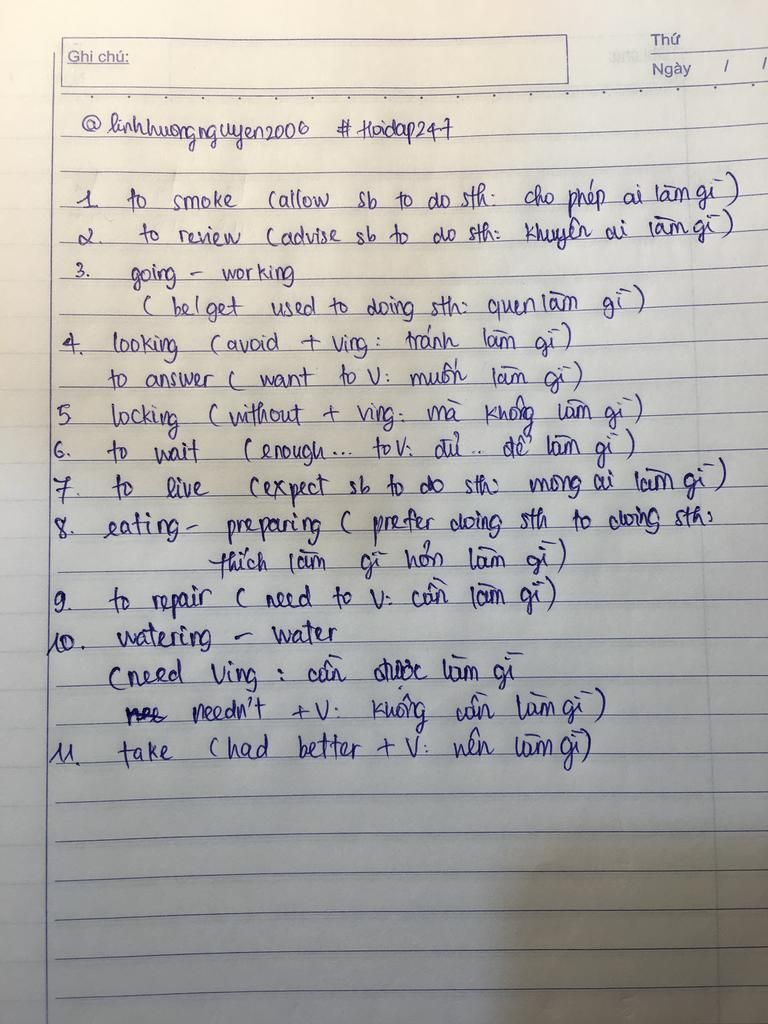 Ghi chú:
Thứ
Ngày / /
@ linhhuongnguyen2006 # Hoidap247
1. to smoke (allow sb to do sth: cho phép ai làm gì)
2. to review (advise sb to do sth: khuyên ai làm gì)
3. going - working
( be/get used to doing sth: quen làm gì)
4. looking (avoid + Ving: tránh làm gì)
to answer ( want to V: muốn làm gì)
5 locking (without + Ving: mà không làm gì)
6. to wait (enough... to V: đủ.. để làm gì)
7. to live (expect sb to do sth: mong ai làm gì)
8. eating - preparing ( prefer doing sth to doing sth:
thích làm gì hơn làm gì)
9. to repair ( need to V: cần làm gì)
10. watering - water
(need Ving : cần được làm gì
needn't + V: không cần làm gì)
11. take (had better + V: nên làm gì)